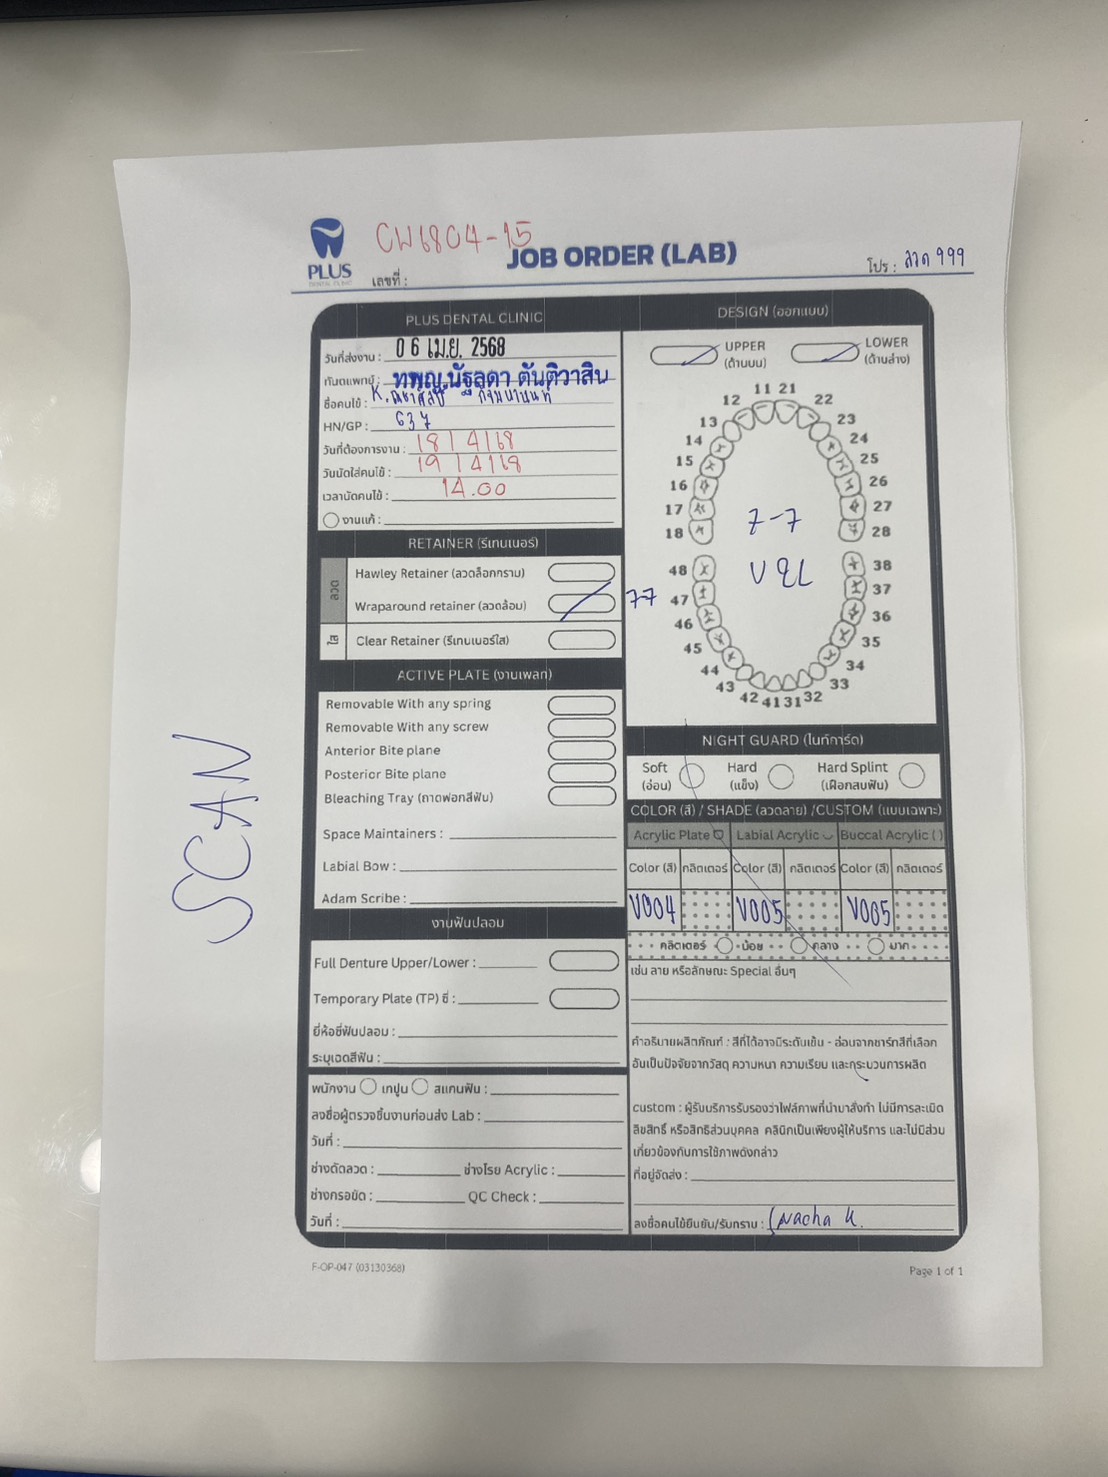 CW6804-15
PLUS
DENTAL CLINIC
เลขที่ :
JOB ORDER (LAB)
โปร : ลวด 999
PLUS DENTAL CLINIC
วันที่ส่งงาน : 06 เม.ย. 2568
ทันตแพทย์ : ทพญ.นัฐลดา ตันติวาสิน
ชื่อคนไข้ : K.
HN/GP : 637
วันที่ต้องการงาน : 18/4/68
วันนัดใส่คนไข้ : 19/4/68
เวลานัดคนไข้ : 14.00
งานแก้ :
RETAINER (รีเทนเนอร์)
ลวด
Hawley Retainer (ลวดล็อกกราม)
Wraparound retainer (ลวดล้อม) 7-7
ใส
Clear Retainer (รีเทนเนอร์ใส)
ACTIVE PLATE (งานเพลท)
Removable With any spring
Removable With any screw
Anterior Bite plane
Posterior Bite plane
Bleaching Tray (ถาดฟอกสีฟัน)
Space Maintainers :
Labial Bow :
Adam Scribe :
งานฟันปลอม
Full Denture Upper/Lower :
Temporary Plate (TP) ซี่ :
ยี่ห้อซี่ฟันปลอม :
ระบุเฉดสีฟัน :
พนักงาน เทปูน สแกนฟัน :
ลงชื่อผู้ตรวจชิ้นงานก่อนส่ง Lab :
วันที่ :
ช่างดัดลวด : ช่างโรย Acrylic :
ช่างกรอขัด : QC Check :
วันที่ :
DESIGN (ออกแบบ)
UPPER
(ด้านบน)
LOWER
(ด้านล่าง)
11 21
12 22
13 23
14 24
15 25
16 26
17 27
18 28
7-7
48 38
47 37
46 36
45 35
44 34
43 33
42 41 31 32
NIGHT GUARD (ไนท์การ์ด)
Soft
(อ่อน)
Hard
(แข็ง)
Hard Splint
(เฝือกสบฟัน)
COLOR (สี) / SHADE (ลวดลาย) /CUSTOM (แบบเฉพาะ)
Acrylic Plate Labial Acrylic Buccal Acrylic ( )
Color (สี) กลิตเตอร์ Color (สี) กลิตเตอร์ Color (สี) กลิตเตอร์
V004 V005 V005
กลิตเตอร์ น้อย กลาง มาก
เช่น ลาย หรือลักษณะ Special อื่นๆ
คำอธิบายผลิตภัณฑ์ : สีที่ได้อาจมีระดับเข้ม - อ่อนจากชาร์ทสีที่เลือก
อันเป็นปัจจัยจากวัสดุ ความหนา ความเรียบ และกระบวนการผลิต
custom : ผู้รับบริการรับรองว่าไฟล์ภาพที่นำมาสั่งทำ ไม่มีการละเมิด
ลิขสิทธิ์ หรือสิทธิส่วนบุคคล คลินิกเป็นเพียงผู้ให้บริการ และไม่มีส่วน
เกี่ยวข้องกับการใช้ภาพดังกล่าว
ที่อยู่จัดส่ง :
ลงชื่อคนไข้ยืนยัน/รับทราบ : Nacha K.
SCAN
F-OP-047 (03130368)
Page 1 of 1